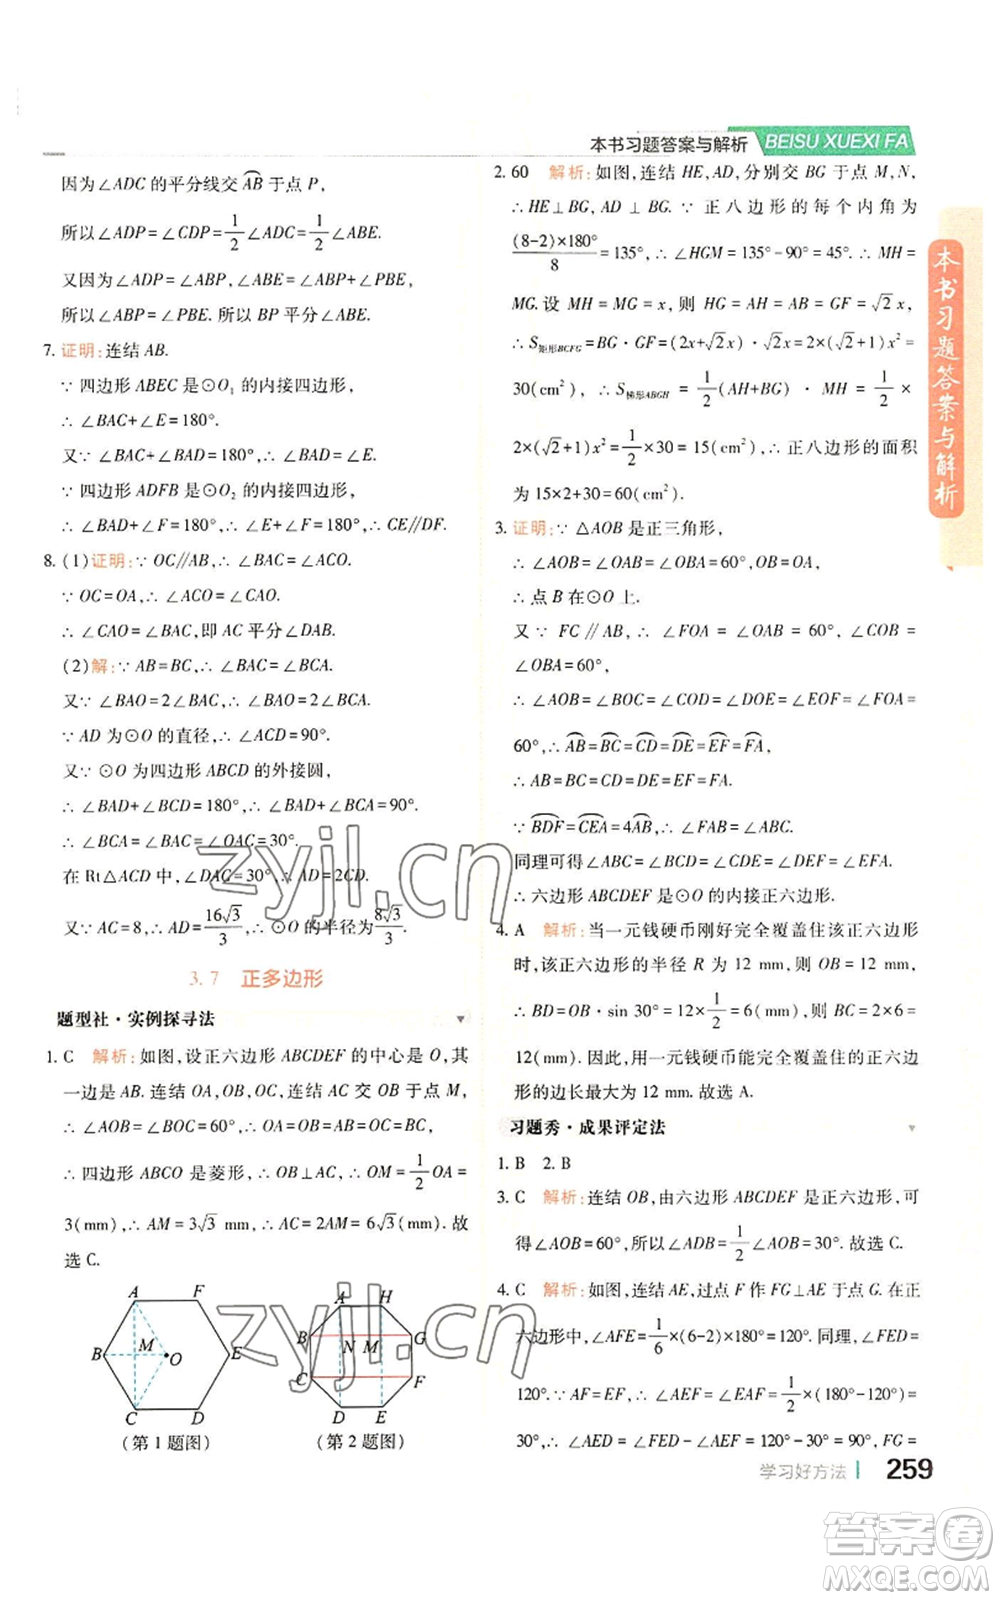 本书习题答案与解析 BEISU XUEXI FA
因为∠ADC 的平分线交 AB⌒ 于点 P,
所以∠ADP=∠CDP=1/2∠ADC=1/2∠ABE.
又因为∠ADP=∠ABP,∠ABE=∠ABP+∠PBE,
所以∠ABP=∠PBE. 所以 BP 平分∠ABE.
7. 证明:连结 AB.
∵ 四边形 ABEC 是⊙O₁ 的内接四边形,
∴ ∠BAC+∠E=180°.
又∵ ∠BAC+∠BAD=180°,∴ ∠E=∠BAD.
∵ 四边形 ADFB 是⊙O₂ 的内接四边形,
∴ ∠BAD+∠F=180°,∴ ∠E+∠F=180°,∴ CE//DF.
8. (1)证明:∵ OC//AB,∴ ∠BAC=∠ACO.
∵ OC=OA,∴ ∠ACO=∠CAO.
∴ ∠CAO=∠BAC,即 AC 平分∠DAB.
(2)解:∵ AB=BC,∴ ∠BAC=∠BCA.
又∵ ∠BAO=2∠BAC,∴ ∠BAO=2∠BCA.
∵ AD 为⊙O 的直径,∴ ∠ACD=90°.
又∵ ⊙O 为四边形 ABCD 的外接圆,
∴ ∠BAD+∠BCD=180°,∴ ∠BAD+∠BCA=90°.
∴ ∠BCA=∠BAC=∠OAC=30°.
在 Rt△ACD 中,∠DAC=30°,∴ AD=2CD.
又∵ AC=8,∴ AD=16√3/3,∴ ⊙O 的半径为8√3/3.
3.7 正多边形
题型社·实例探寻法
1. C 解析:如图,设正六边形 ABCDEF 的中心是 O,其
一边是 AB. 连结 OA,OB,OC,连结 AC 交 OB 于点 M,
∴ ∠AOB=∠BOC=60°,∴ OA=OB=AB=BC=OC,
∴ 四边形 ABCO 是菱形,∴ OB⊥AC,∴ OM=1/2OA=
3(mm),∴ AM=3√3 mm,∴ AC=2AM=6√3(mm). 故
选 C.
A F
B M O E
C D
(第 1 题图)
A H
B N M G
C F
D E
(第 2 题图)
2. 60 解析:如图,连结 HE,AD,分别交 BG 于点 M,N,
∴ HE⊥BG,AD⊥BG. ∵ 正八边形的每个内角为
(8-2)×180°/8=135°,∴ ∠HGM=135°-90°=45°. ∴ MH=
MG. 设 MH=MG=x,则 HG=AH=AB=GF=√2x,
∴ S矩形BCFG=BG·GF=(2x+√2x)·√2x=2×(√2+1)x²=
30(cm²),∴ S梯形ABGH=1/2(AH+BG)·MH=1/2×
2×(√2+1)x²=1/2×30=15(cm²),∴ 正八边形的面积
为 15×2+30=60(cm²).
3. 证明:∵ △AOB 是正三角形,
∴ ∠AOB=∠OAB=∠OBA=60°,OB=OA,
∴ 点 B 在⊙O 上.
又∵ FC//AB,∴ ∠FOA=∠OAB=60°,∠COB=
∠OBA=60°,
∴ ∠AOB=∠BOC=∠COD=∠DOE=∠EOF=∠FOA=
60°,∴ AB⌒=BC⌒=CD⌒=DE⌒=EF⌒=FA⌒,
∴ AB=BC=CD=DE=EF=FA.
∵ BDF⌒=CEA⌒=4AB⌒,∴ ∠FAB=∠ABC.
同理可得∠ABC=∠BCD=∠CDE=∠DEF=∠EFA.
∴ 六边形 ABCDEF 是⊙O 的内接正六边形.
4. A 解析:当一元钱硬币刚好完全覆盖住该正六边形
时,该正六边形的半径 R 为 12 mm,此时∠BOC=60°,
∴ BD=OB·sin 30°=12×1/2=6,则 BC=2×6=
12(mm). 因此,用一元钱硬币能完全覆盖住的正六边
形的边长最大为 12 mm. 故选 A.
习题秀·成果评定法
1. B 2. B
3. C 解析:连结 OB,由六边形 ABCDEF 是正六边形,可
得∠AOB=60°,所以∠ADB=1/2∠AOB=30°. 故选 C.
4. C 解析:如图,连结 AE,过点 F 作 FG⊥AE 于点 G. 在正
六边形中,∠AFE=1/6×(6-2)×180°=120°. 同理,∠FED=
120°. ∵ AF=EF,∴ ∠AEF=∠EAF=1/2×(180°-120°)=
30°,∴ ∠AED=∠FED-∠AEF=120°-30°=90°,FG=
本书习题答案与解析
学习好方法 259
zyjl.cn
zyjl.cn
答案卷
MXQE.COM